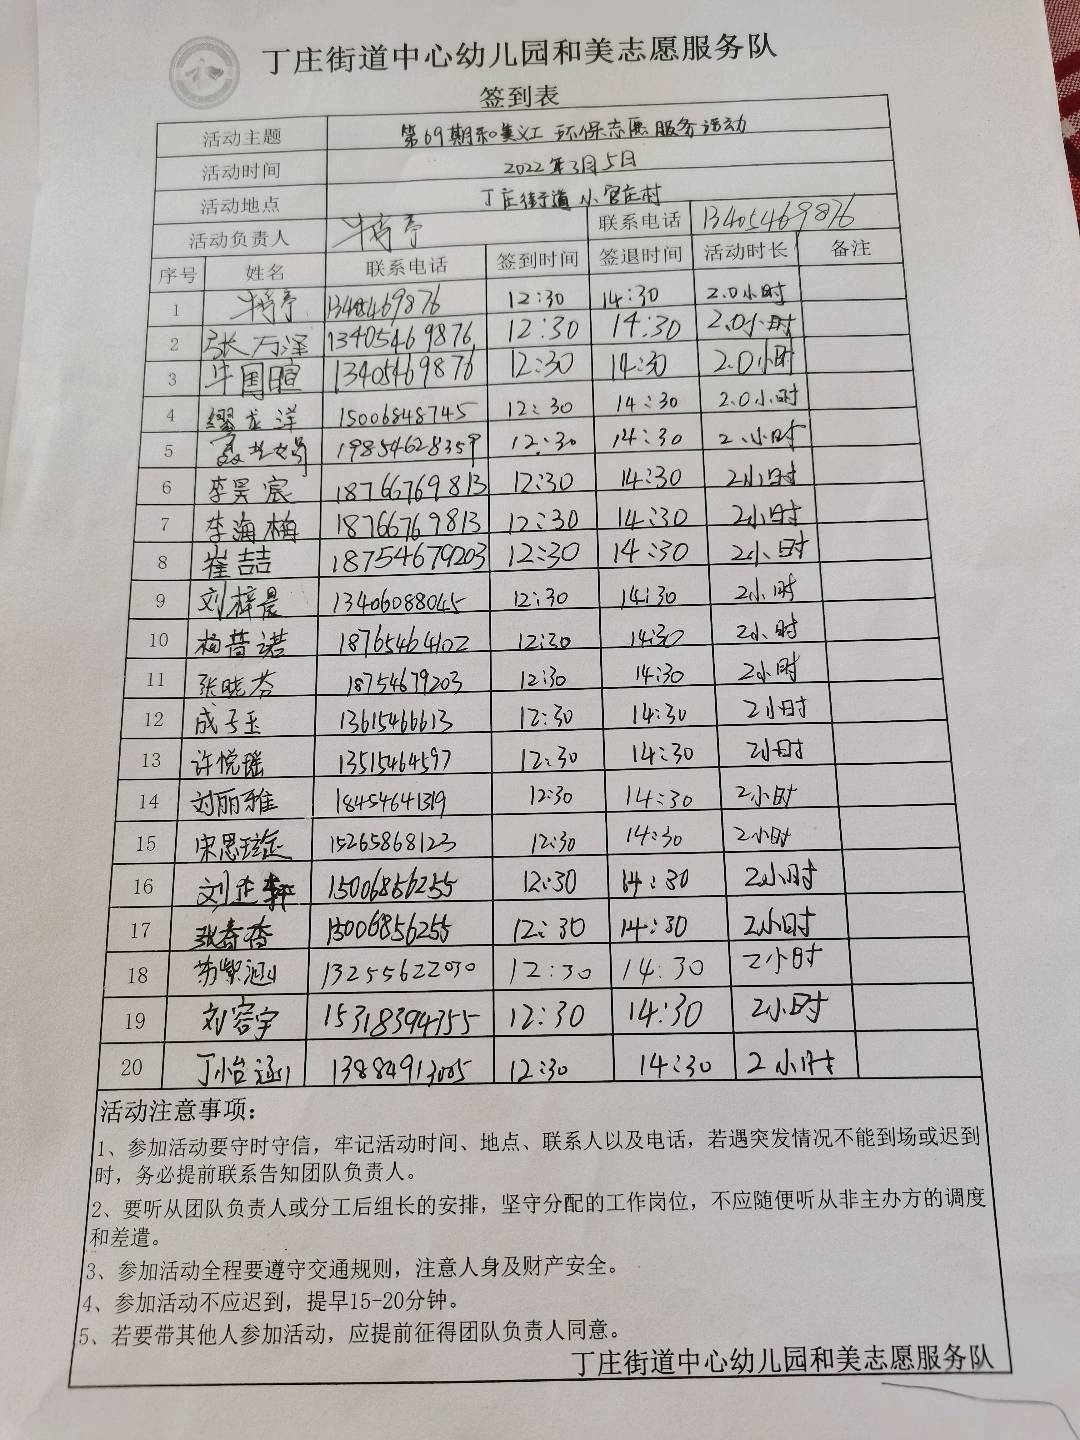 丁庄街道中心幼儿园和美志愿服务队
签到表
活动主题 第69期和美义工 环保志愿服务活动
活动时间 2022年3月5日
活动地点 丁庄街道小官庄村
活动负责人 联系电话 13405469876
序号 姓名 联系电话 签到时间 签退时间 活动时长 备注
1 12:30 14:30 2.0小时
2 张万泽 13405469876 12:30 14:30 2.0小时
3 牛国暄 13405469876 12:30 14:30 2.0小时
4 缪龙洋 15006848745 12:30 14:30 2.0小时
5 19854628359 12:30 14:30 2.小时
6 李昊宸 18766769813 12:30 14:30 2小时
7 李海梅 18766769813 12:30 14:30 2小时
8 崔喆 18754679203 12:30 14:30 2小时
9 刘梓晨 13406088045 12:30 14:30 2小时
10 杨昔诺 18765464102 12:30 14:30 2小时
11 张晓芬 18754679203 12:30 14:30 2小时
12 成子玉 13615466613 12:30 14:30 2小时
13 许悦瑶 13515464597 12:30 14:30 2小时
14 刘丽雅 18454641319 12:30 14:30 2小时
15 15265868123 12:30 14:30 2小时
16 刘芷轩 15006856255 12:30 14:30 2小时
17 张春香 15006856255 12:30 14:30 2小时
18 苏紫涵 13255622030 12:30 14:30 2小时
19 刘容宇 15318394355 12:30 14:30 2小时
20 丁怡涵 13884913005 12:30 14:30 2小时
活动注意事项：
1、参加活动要守时守信，牢记活动时间、地点、联系人以及电话，若遇突发情况不能到场或迟到
时，务必提前联系告知团队负责人。
2、要听从团队负责人或分工后组长的安排，坚守分配的工作岗位，不应随便听从非主办方的调度
和差遣。
3、参加活动全程要遵守交通规则，注意人身及财产安全。
4、参加活动不应迟到，提早15-20分钟。
5、若要带其他人参加活动，应提前征得团队负责人同意。
丁庄街道中心幼儿园和美志愿服务队